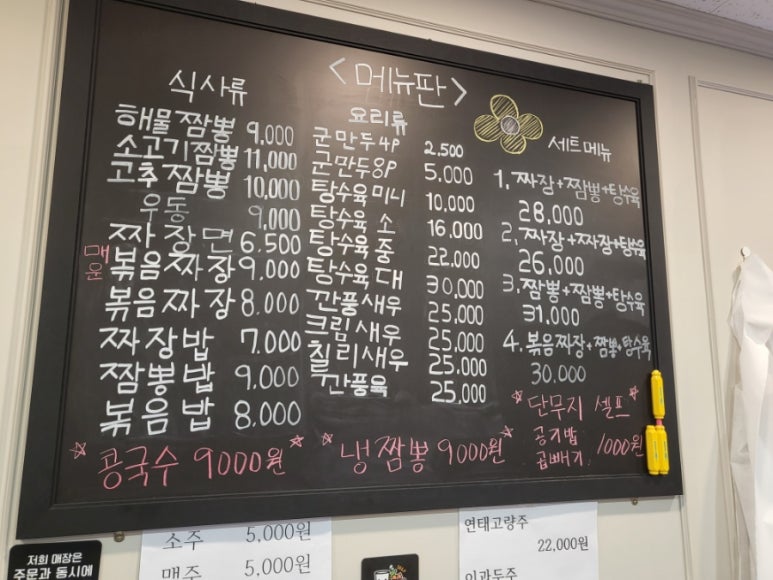 <메뉴판>
식사류
해물짬뽕 9,000
소고기짬뽕 11,000
고추짬뽕 10,000
우동 9,000
짜장면 6.500
매운 볶음짜장 9,000
볶음짜장 8,000
짜장밥 7.000
짬뽕밥 9,000
볶음밥 8,000
요리류
군만두4P 2.500
군만두8P 5.000
탕수육 미니 10,000
탕수육 소 16.000
탕수육 중 22,000
탕수육 대 30,000
깐풍새우 25,000
크림새우 25,000
칠리새우 25,000
깐풍육 25,000
세트메뉴
1. 짜장+짬뽕+탕수육
28,000
2. 짜장+짜장+탕수육
26,000
3. 짬뽕+짬뽕+탕수육
31,000
4. 볶음짜장+짬뽕+탕수육
30.000
단무지 셀프
공기밥
곱빼기 1000원
콩국수 9000원
냉짬뽕 9000원
저희 매장은
주문과 동시에
소주 5,000원
맥주 5,000원
연태고량주
22,000원
이과두주